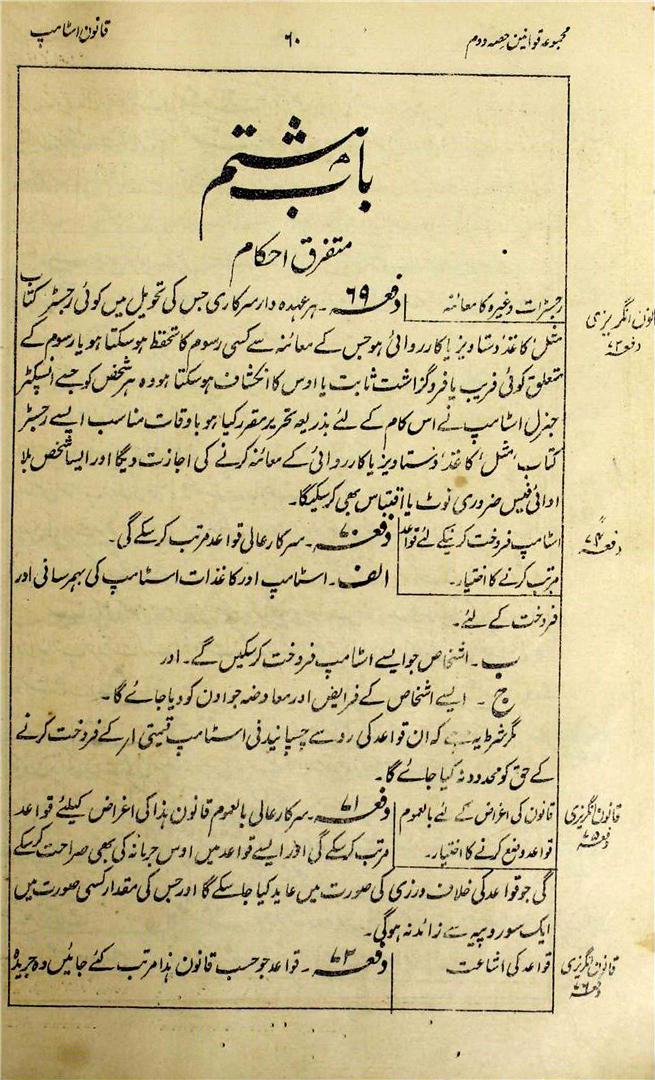 مجموعہ قوانین حصہ دوم
۶۰
قانون اسٹامپ
باب ہشتم
متفرق احکام
رجسٹرات وغیرہ کا معائنہ
دفعہ ۶۹ ۔ ہر عہدہ دار سرکاری جس کی تحویل میں کوئی رجسٹر کتاب
قانون انگریزی
دفعہ ۷۳
مثل کاغذ دستاویز یا کارروائی ہو جس کے معائنہ سے کسی رسوم کا تحفظ ہو سکتا ہو یا رسوم کے
متعلق کوئی فریب یا فروگزاشت ثابت یا اوس کا انکشاف ہو سکتا ہو وہ ہر شخص کو جسے انسپکٹر
جنرل اسٹامپ نے اس کام کے لئے بذریعہ تحریر مقرر کیا ہو باوقات مناسب ایسے رجسٹر
کتاب مثل کاغذ دستاویز یا کارروائی کے معائنہ کرنے کی اجازت دیگا اور ایسا شخص بلا
ادائی فیس ضروری نوٹ یا اقتباس بھی کر سکیگا۔
اسٹامپ فروخت کرنیکے لئے قواعد
مرتب کرنے کا اختیار۔
دفعہ ۷۰ ۔ سرکار عالی قواعد مرتب کر سکے گی۔
〃
دفعہ ۷۴
الف ۔ اسٹامپ اور کاغذات اسٹامپ کی بہمرسانی اور
فروخت کے لئے۔
ب ۔ اشخاص جو ایسے اسٹامپ فروخت کر سکیں گے۔ اور
ج ۔ ایسے اشخاص کے فرایض اور معاوضہ جو اون کو دیا جائے گا۔
مگر شرط یہ ہے کہ ان قواعد کی رو سے چسپانیدنی اسٹامپ قیمتی ۱؍ کے فروخت کرنے
کے حق کو محدود نہ کیا جائے گا۔
قانون کی اغراض کے لئے بالعموم
قواعد وضع کرنے کا اختیار۔
دفعہ ۷۱ ۔ سرکار عالی بالعموم قانون ہذا کی اغراض کیلئے قواعد
قانون انگریزی
دفعہ ۷۵
مرتب کر سکے گی اور ایسے قواعد میں اوس جرمانہ کی بھی صراحت کر سکے
گی جو قواعد کی خلاف ورزی کی صورت میں عاید کیا جا سکے گا اور جس کی مقدار کسی صورت میں
ایک سو روپیہ سے زائد نہ ہوگی۔
قواعد کی اشاعت
دفعہ ۷۲ ۔ قواعد جو حسب قانون ہذا مرتب کئے جائیں وہ جریدہ
قانون انگریزی
دفعہ ۷۶